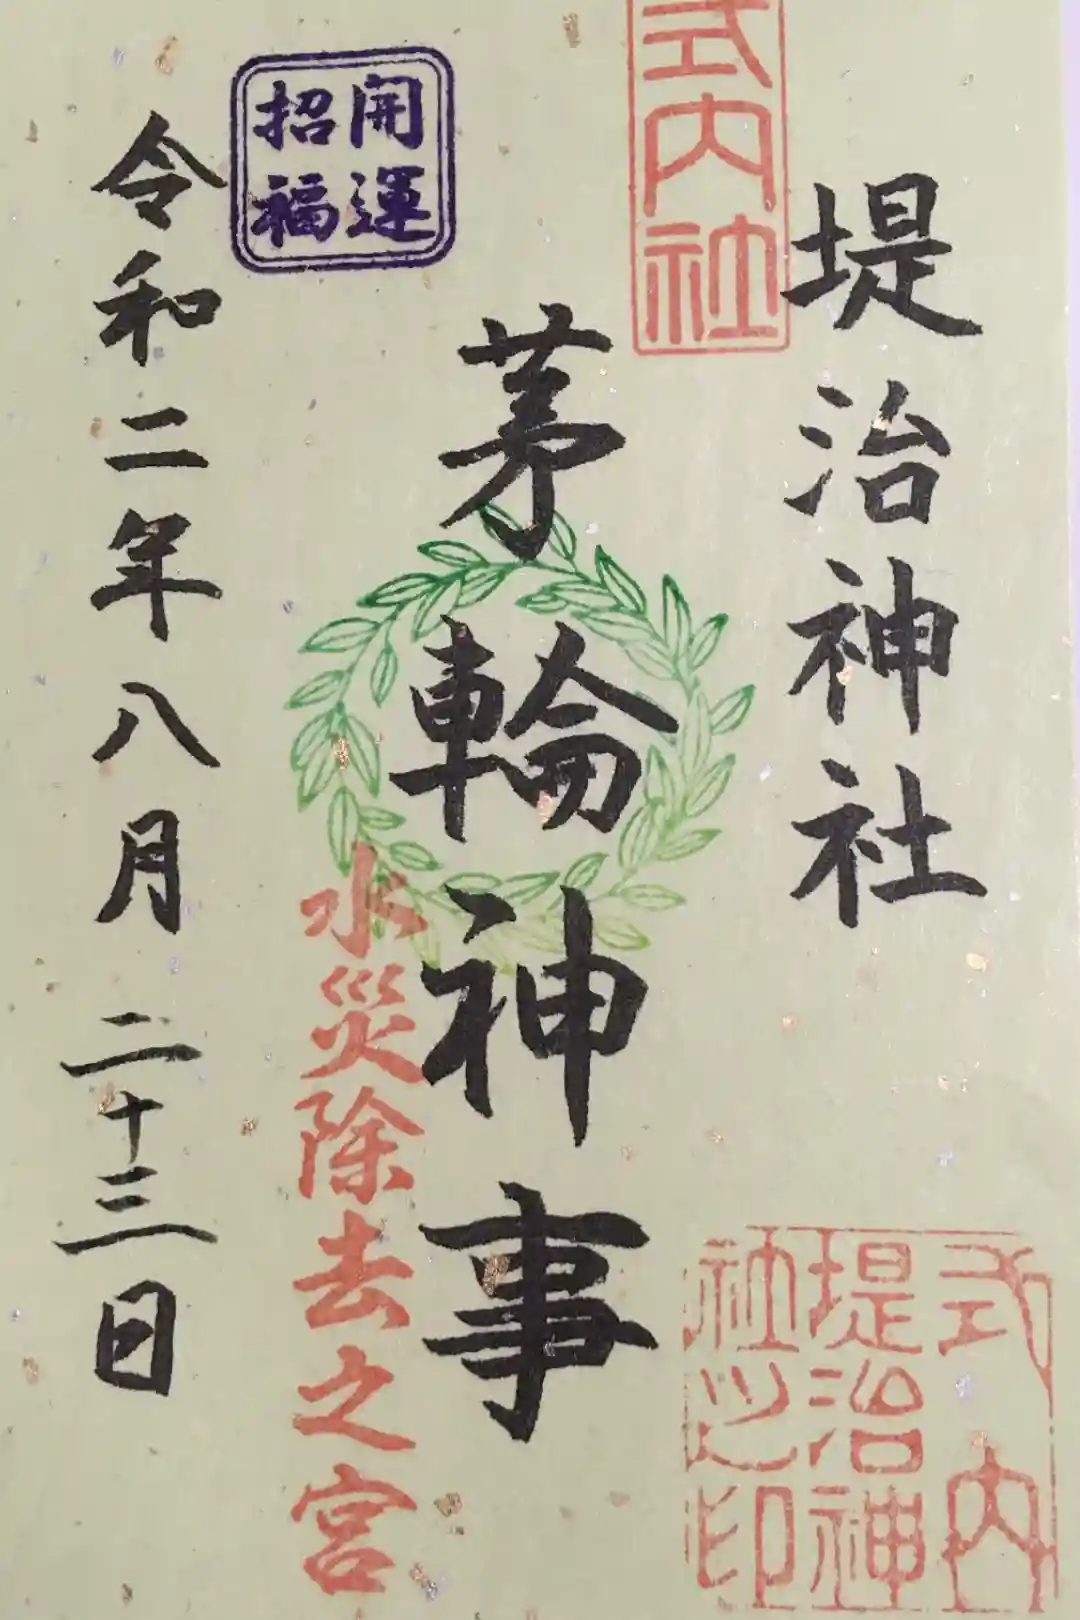 式内社
堤治神社
茅輪神事
開運
招福
水災除去之宮
令和二年八月二十三日
式内
堤治神
社之印